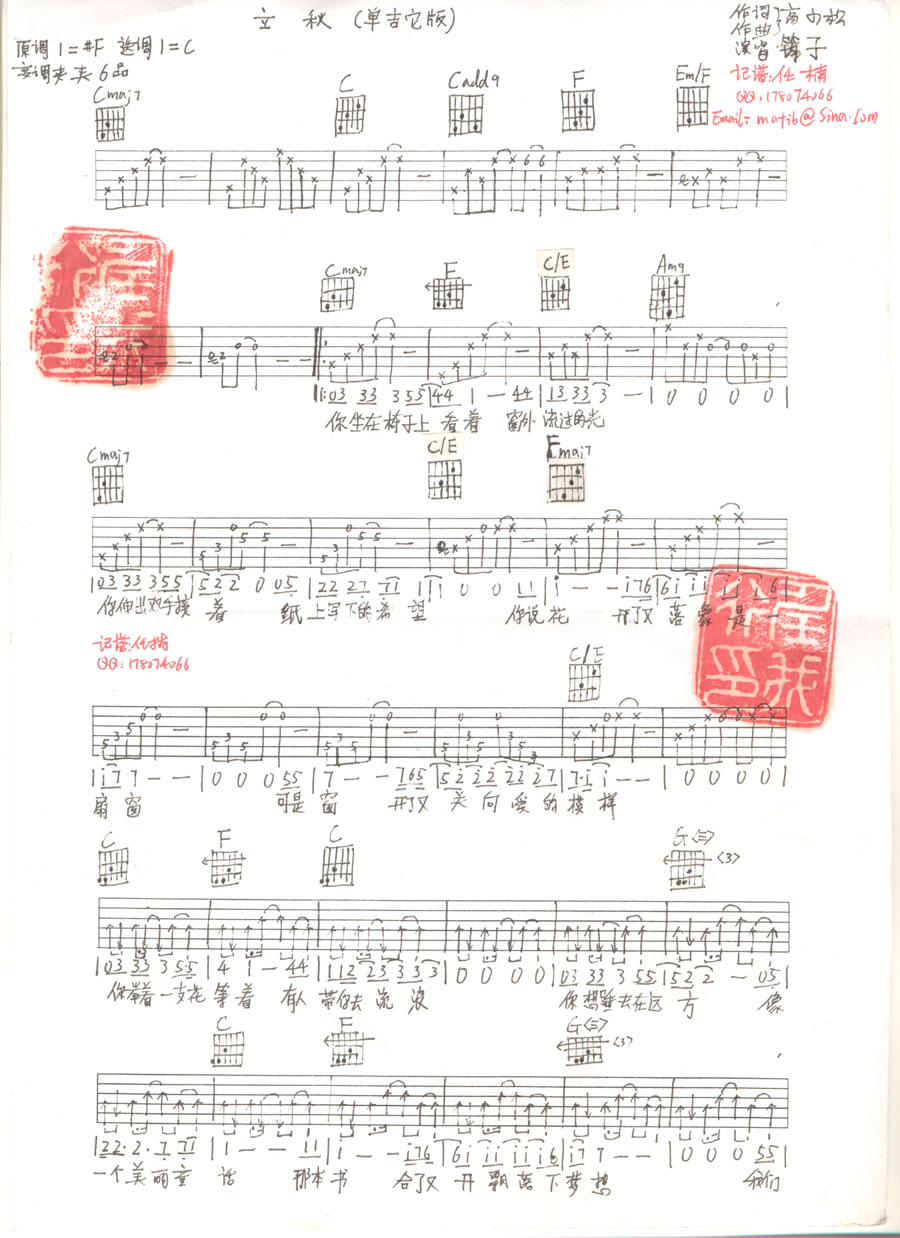 立秋(单吉它版)
作词 高小松
作曲
演唱 锦子
原调1=#F 选调1=C
变调夹夹6品
记谱:任楠
QQ:178074066
Email: matib@sina.com
Cmaj7 C Cadd9 F Em/F
Cmaj7 F C/E Am9
|:03 33 3 55|44 1 — 44|13 33 3 —|0 0 0 0|
你坐在椅子上看着 窗外流过的光
Cmaj7 C/E Fmaj7
|03 33 3 55|52 2 0 05|22 27 11 1|1 0 0 11|1 — — 176|61 11 11 16|
你伸出双手摸着 纸上写下的希望 你说花 开了又落象是一
记谱:任楠
QQ:178074066
C/E
|17 7 — —|0 0 0 55|7 — — 765|52 22 22 27|7·1 1 — —|0 0 0 0|
扇窗 可是窗 开了又关向爱的模样
C F C G<三> <3>
|03 33 3 55|4 1 — 44|112 23 3 3 3|0 0 0 0|03 33 3 55|52 2 — 05|
你举着一支花等着 有人带你去流浪 你想睡去在远方 像
C F G<三> <3>
|22·2·7 71|1 — — 11|1 — — 176|61 11 11 16|17 7 — —|0 0 0 55|
一个美丽童话 那本书 合了又开飘落下梦想 我们